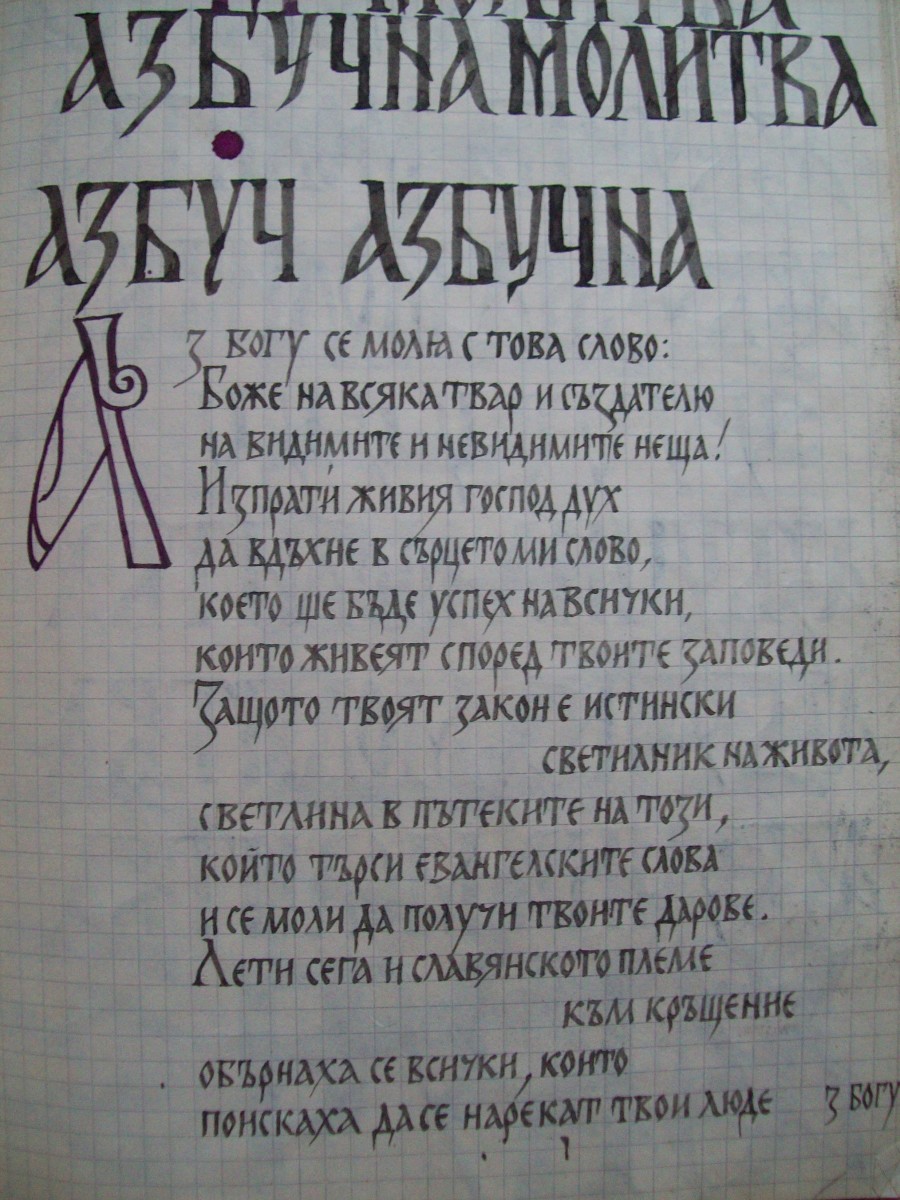 МОЛИТВА
АЗБУЧНА МОЛИТВА
АЗБУЧ АЗБУЧНА
Аз богу се молѭ с това слово:
Боже на всяка твар и създателю
на видимите и невидимите неща!
Изпрати живия господ дух
да вдъхне в сърцето ми слово,
което ще бъде успех на всички,
които живеят според твоите заповеди.
Защото твоят закон е истински
светилник на живота,
светлина в пътеките на този,
който търси евангелските слова
и се моли да получи твоите дарове.
Лети сега и славянското племе
към кръщение
обърнаха се всички, които
поискаха да се нарекат твои люде з богу